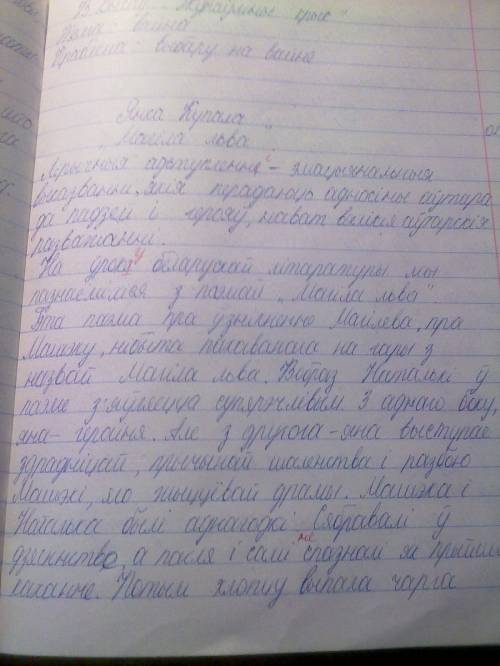 В. Быкаў "Жураўліны крык"
Тэма: вайна
Праблема: выбару на вайне
Янка Купала
"Магіла льва"
Лірычныя адступленні - эмацыянальныя
выказванні, якія перадаюць адносіны аўтара
да падзей і герояў, нават вялікія аўтарскія
разважанні.
На уроку беларускай літаратуры мы
пазнаёмімся з паэмай "Магіла льва".
Гэта паэма пра ўзнікненне Магілева, пра
Машэку, нібыта пахаванага на гары з
назвай Магіла льва. Вобраз Наталькі ў
паэме з'яўляецца супярэчлівым. З аднаго боку,
яна - гераіня. Але з другога - яна выступае
здрадніцай, прычынай шаленства і разбою
Машэкі, яго жыццёвай драмы. Машэка і
Наталька былі аднагодкі. Сябравалі ў
дзяцінстве, а пасля і самі не спазналі як прыйшло
каханне. Потым хлопцу выпала чарга